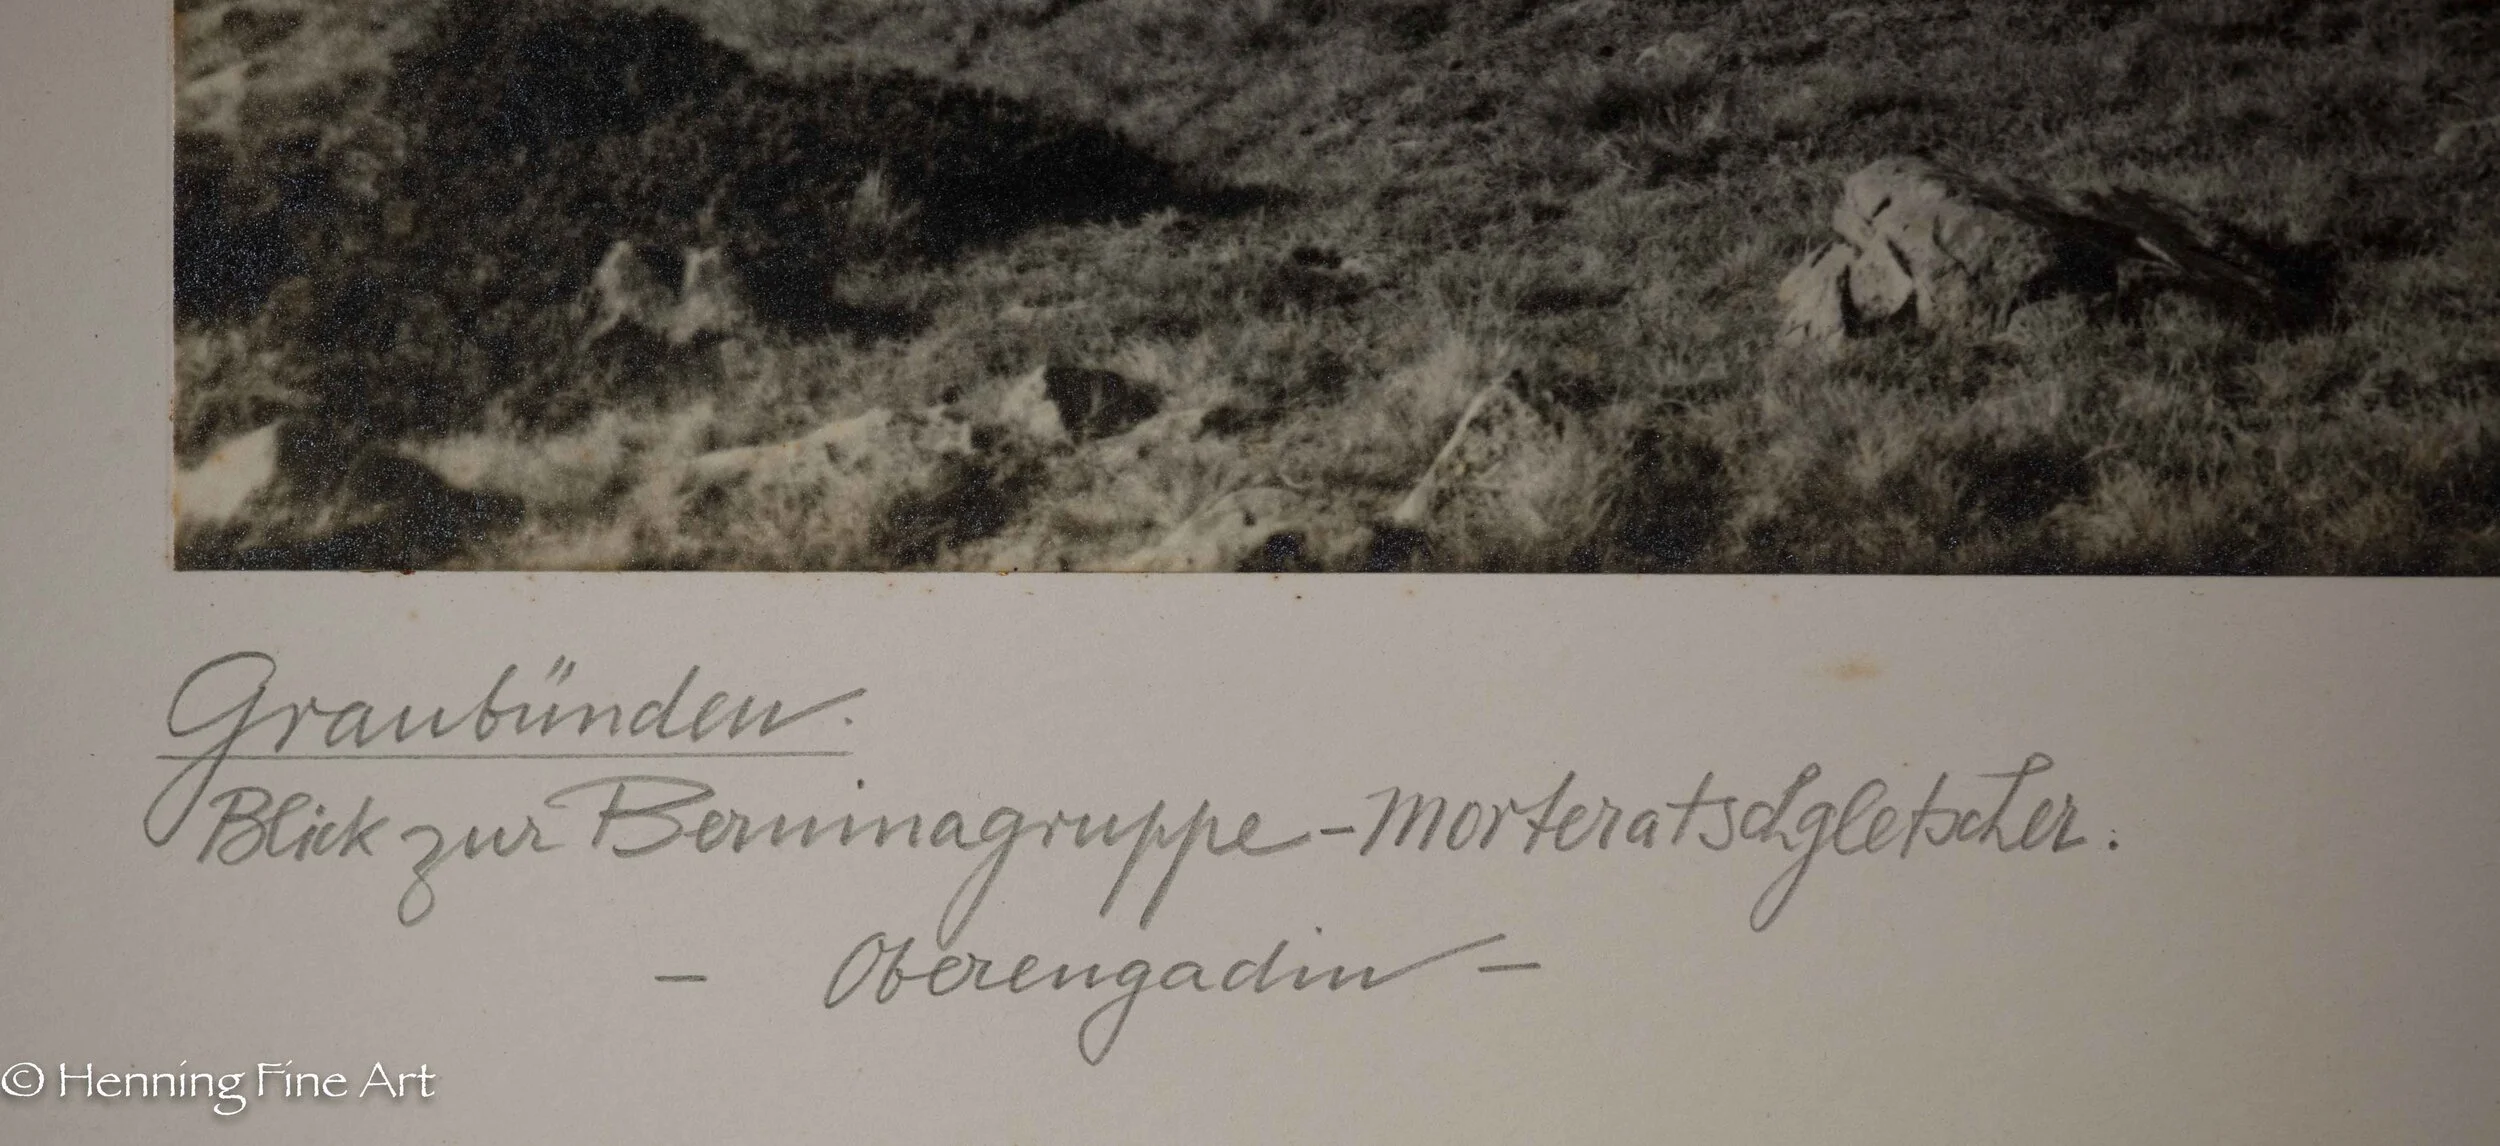 Graubünden.
Blick zur Berninagruppe - Morteratschgletscher.
- Oberengadin -
© Henning Fine Art